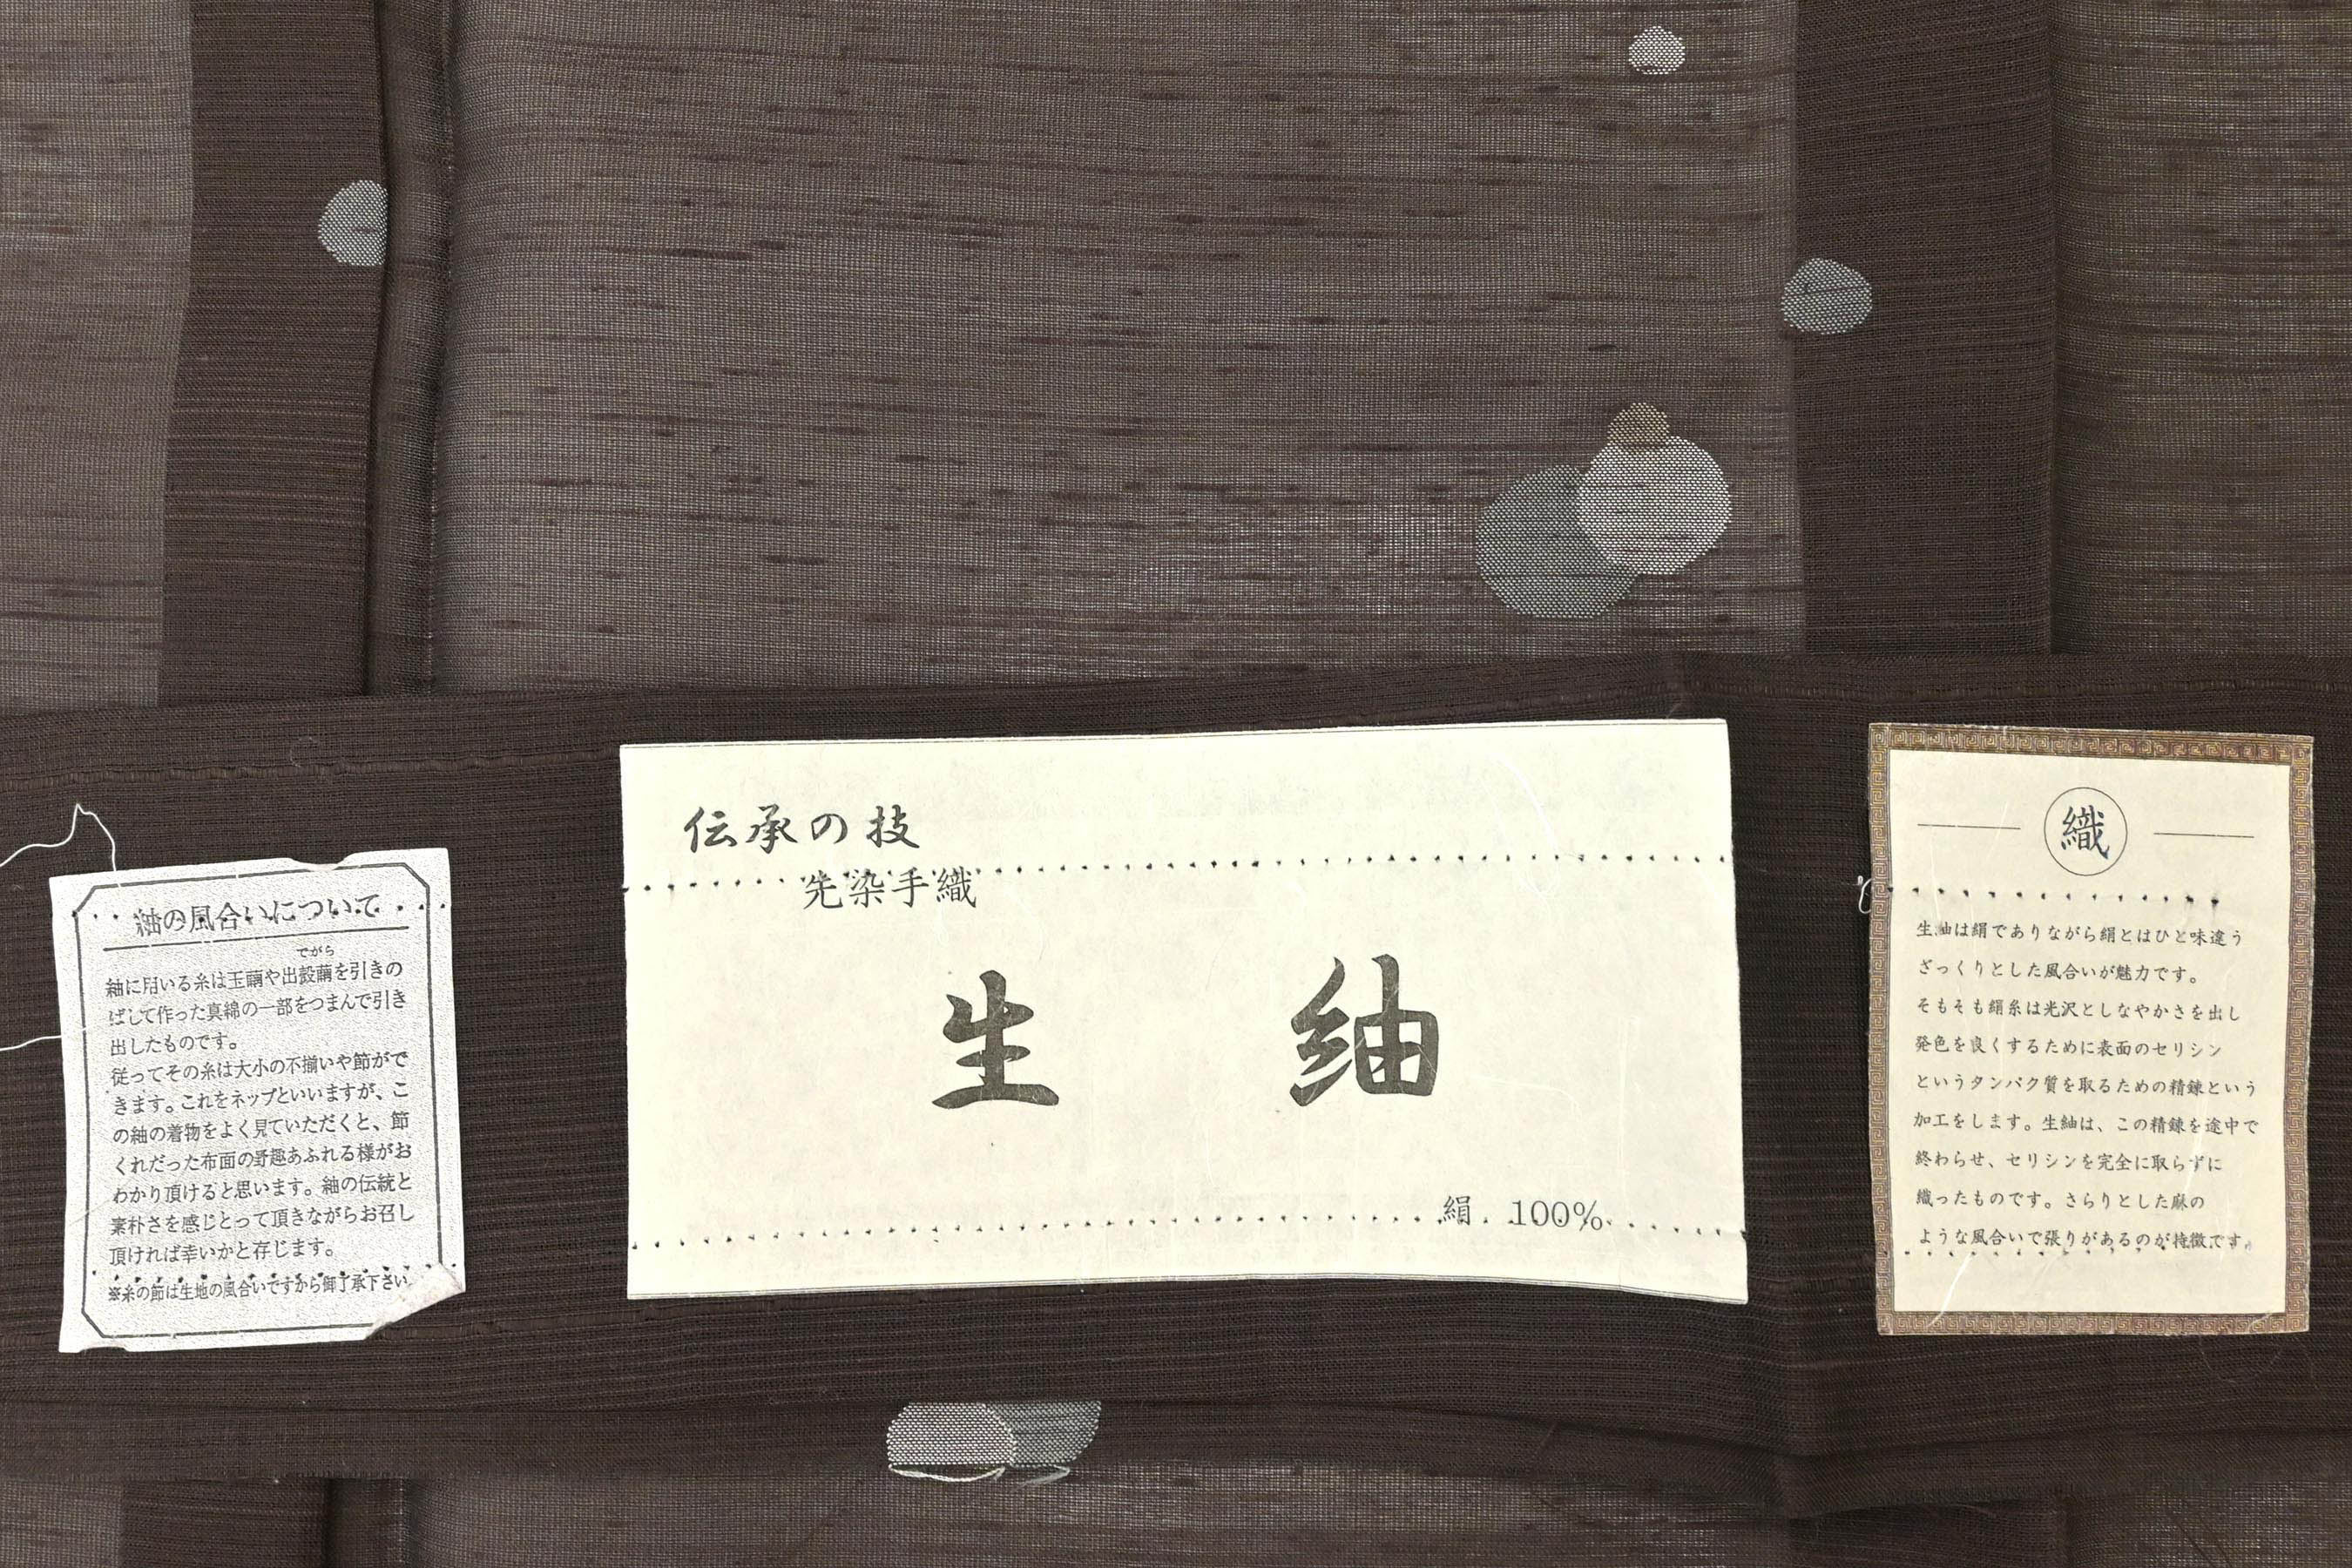 紬の風合いについて
でがら
紬に用いる糸は玉繭や出殻繭を引きの
ばして作った真綿の一部をつまんで引き
出したものです。
従ってその糸は大小の不揃いや節がで
きます。これをネップといいますが、こ
の紬の着物をよく見ていただくと、節
くれだった布面の野趣あふれる様がお
わかり頂けると思います。紬の伝統と
素朴さを感じとって頂きながらお召し
頂ければ幸いかと存じます。
※糸の節は生地の風合いですから御了承下さい。
伝承の技
先染手織
生紬
絹 100%
織
生紬は絹でありながら絹とはひと味違う
ざっくりとした風合いが魅力です。
そもそも絹糸は光沢としなやかさを出し
発色を良くするために表面のセリシン
というタンパク質を取るための精錬という
加工をします。生紬は、この精錬を途中で
終わらせ、セリシンを完全に取らずに
織ったものです。さらりとした麻の
ような風合いで張りがあるのが特徴です。